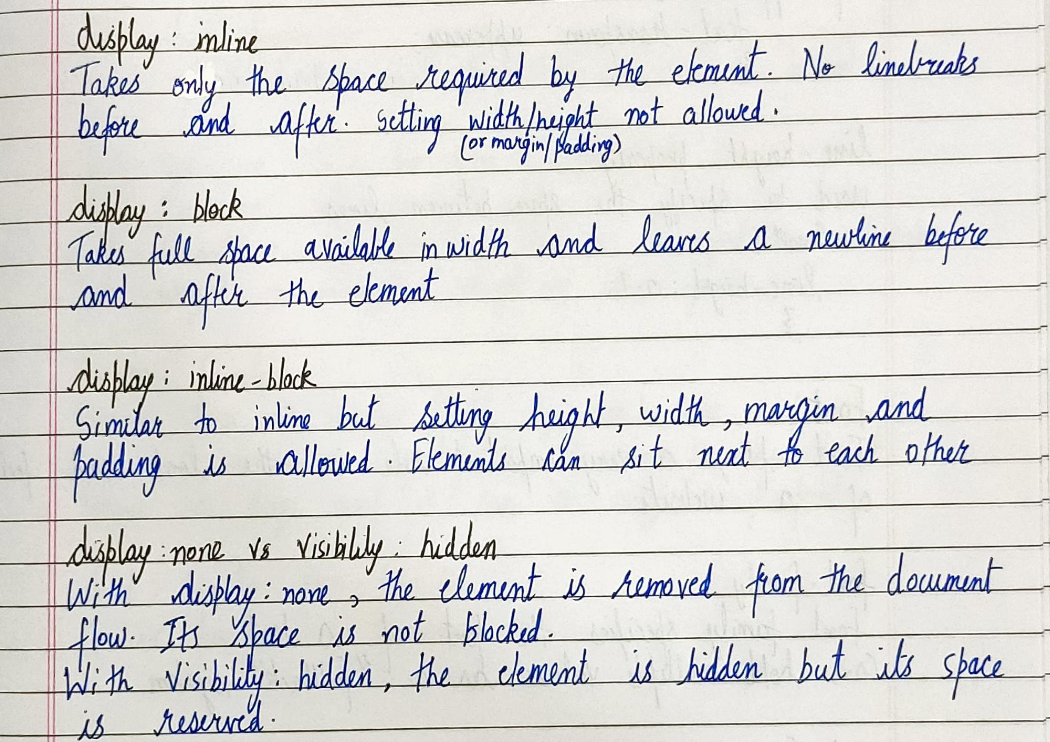 display : inline
Takes only the space required by the element. No linebreaks
before and after. Setting width/height not allowed.
(or margin/padding)
display : block
Takes full space available in width and leaves a newline before
and after the element
display : inline-block
Similar to inline but setting height, width, margin and
padding is allowed. Elements can sit next to each other
display : none vs visibility : hidden
With display : none, the element is removed from the document
flow. Its space is not blocked.
With visibility : hidden, the element is hidden but its space
is reserved.